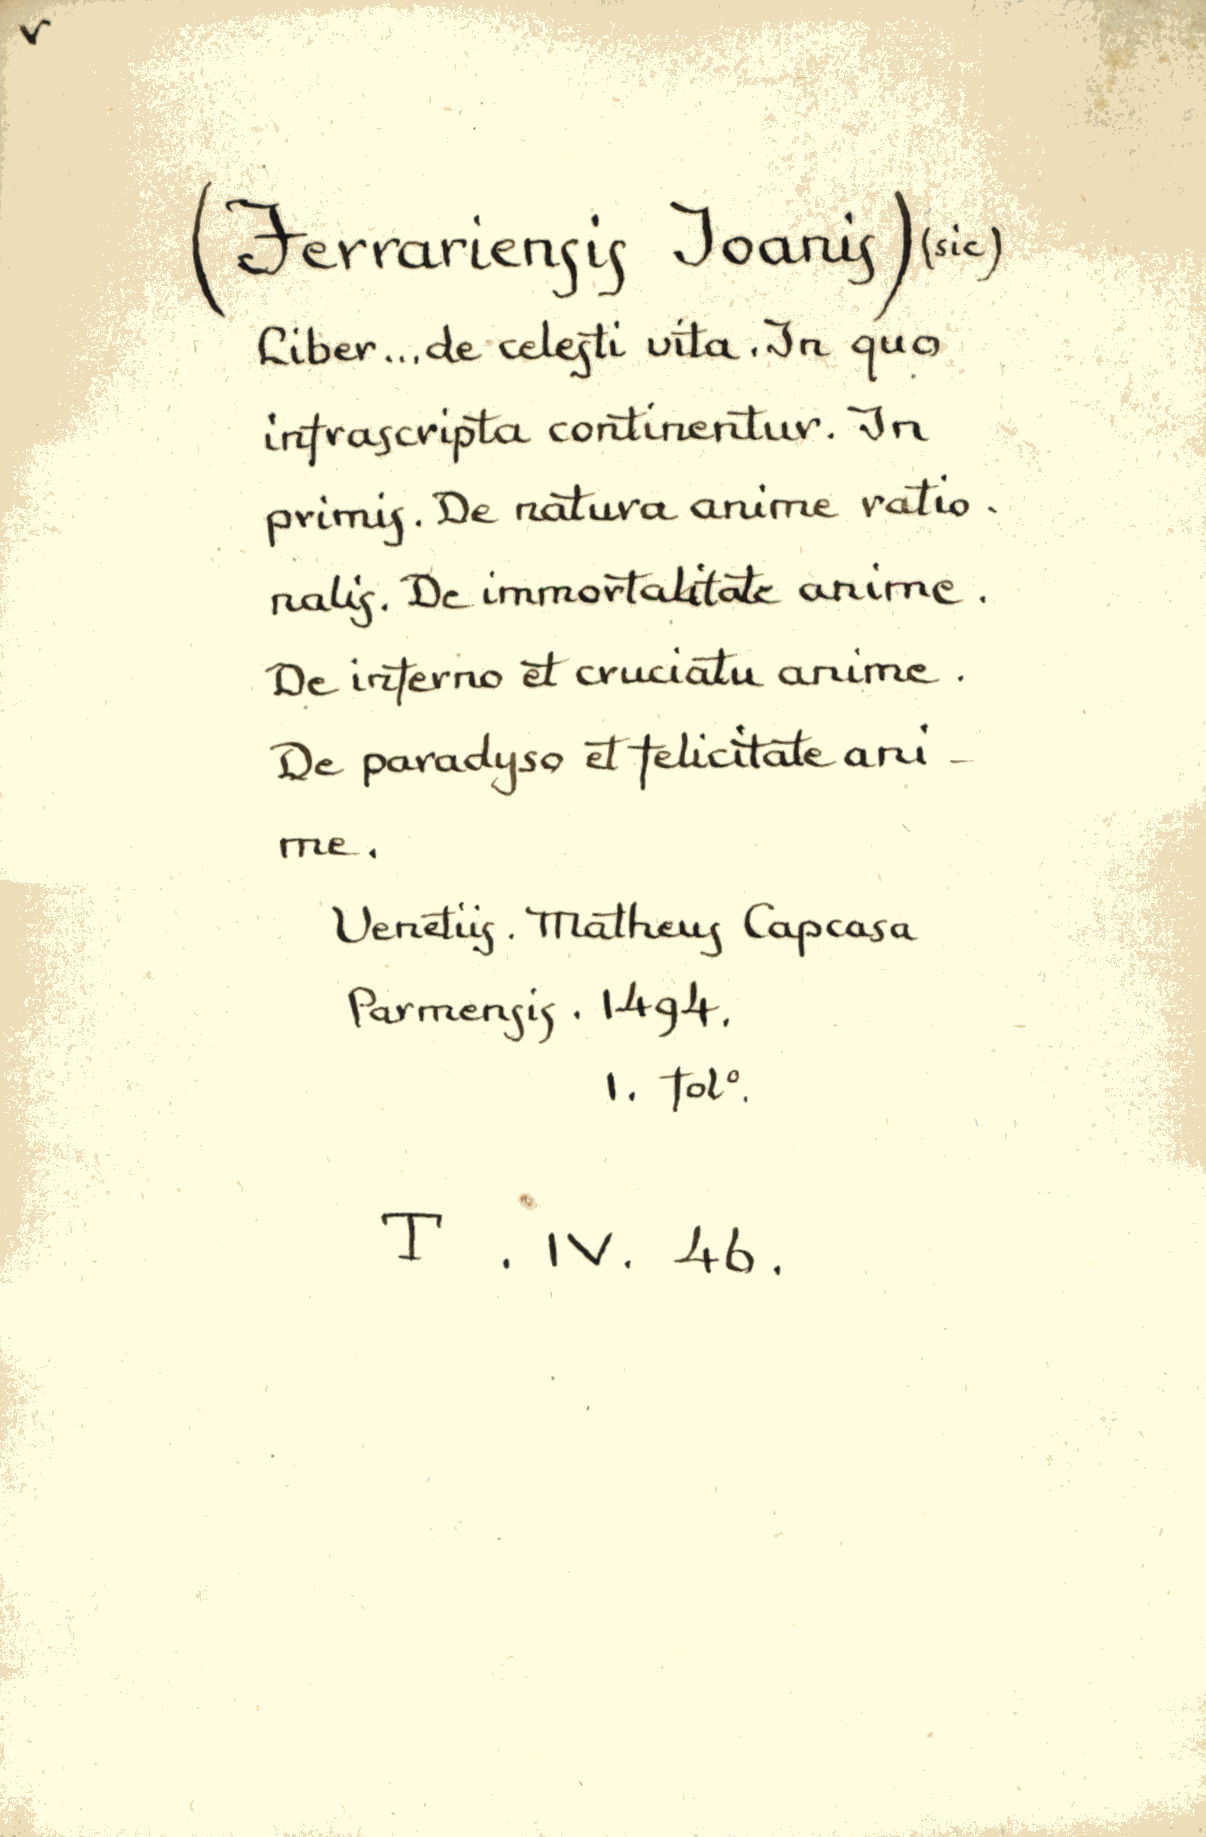 (Ferrariensis Joanis) (sic)
Liber... de celesti vita. In quo
infrascripta continentur. In
primis. De natura anime ratio.
nalis. De immortalitate anime.
De inferno et cruciatu anime.
De paradyso et felicitate ani-
me.
Venetiis. Matheus Capcasa
Parmensis. 1494.
1. folº.
T. IV. 46.